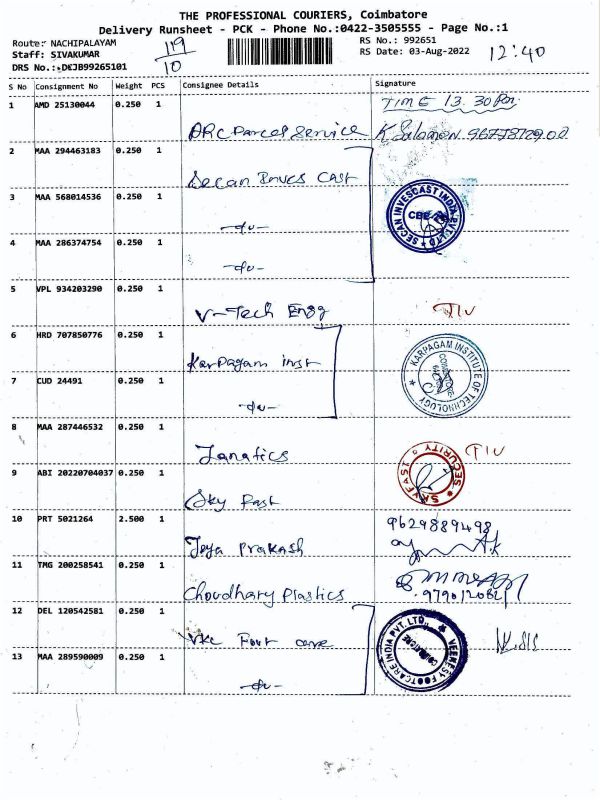 THE PROFESSIONAL COURIERS, Coimbatore
Delivery Runsheet - PCK - Phone No.:0422-3505555 - Page No.:1
Route: NACHIPALAYAM
Staff: SIVAKUMAR
DRS No.:DKJB99265101
119
10
RS No.: 992651
RS Date: 03-Aug-2022
12:40
S No Consignment No Weight PCS Consignee Details Signature
1 AMD 25130044 0.250 1
TIME 13.30Pm
ARC Parcel Service K Salomon
2 MAA 294463183 0.250 1
Secan Inves Cast
3 MAA 568014536 0.250 1
-du-
SECAN INVESCAST INDIA PVT. LTD
CBE
4 MAA 286374754 0.250 1
-du-
5 VPL 934203290 0.250 1
V-Tech Engg
6 HRD 707850776 0.250 1
Karpagam inst
KARPAGAM INSTITUTE OF TECHNOLOGY
COIMBATORE
7 CUD 24491 0.250 1
-du-
8 MAA 287446532 0.250 1
Janatics
9 ABI 20220704037 0.250 1
Sky Fast
SKYFAST SECURITY
10 PRT 5021264 2.500 1
Jeya Prakash
9629889498
11 TMG 200258541 0.250 1
Choudhary Plastics
12 DEL 120542581 0.250 1
VKC Foot care
VEEKESY FOOTCARE INDIA PVT. LTD.,
COIMBATORE
13 MAA 289590009 0.250 1
-du-